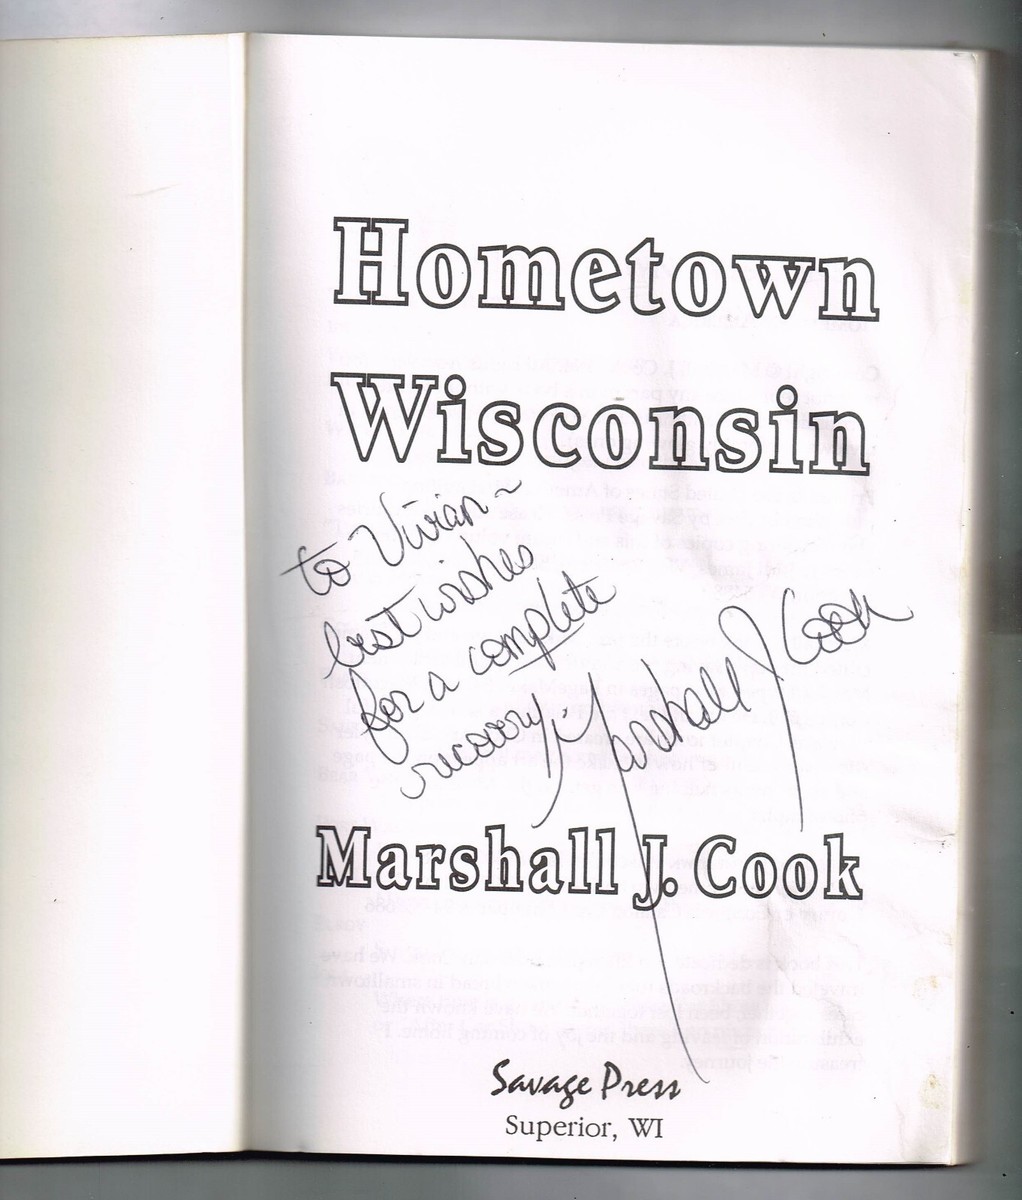 Hometown
Wisconsin
to Vivian~
best wishes
for a complete
recovery,
Marshall J Cook
Marshall J. Cook
Savage Press
Superior, WI